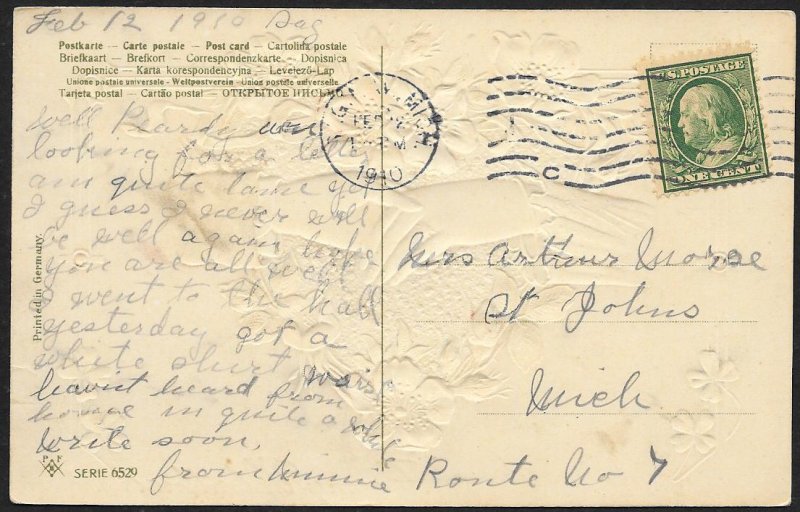 Feb 12 1910
Postkarte - Carte postale - Post card - Cartolina postale
Briefkaart - Brefkort - Correspondenzkarte - Dopisnica
Dopisnice - Karta korespondencyjna - Levelező-Lap
Unione postale universale - Weltpostverein - Union postale universelle
Tarjeta postal - Cartão postal - ОТКРЫТОЕ ПИСЬМО
MICH.
FEB
1910
C
U.S. POSTAGE
ONE CENT
Well
looking for a letter
am quite lame yet
I guess I never will
be well again hope
you are all well
I went to the hall
yesterday got a
white shirt waist
havint heard from
home in quite a while
write soon,
from Minnie
Mrs Arthur Morse
St Johns
Mich
Route No 7
Printed in Germany.
P F
SERIE 6529